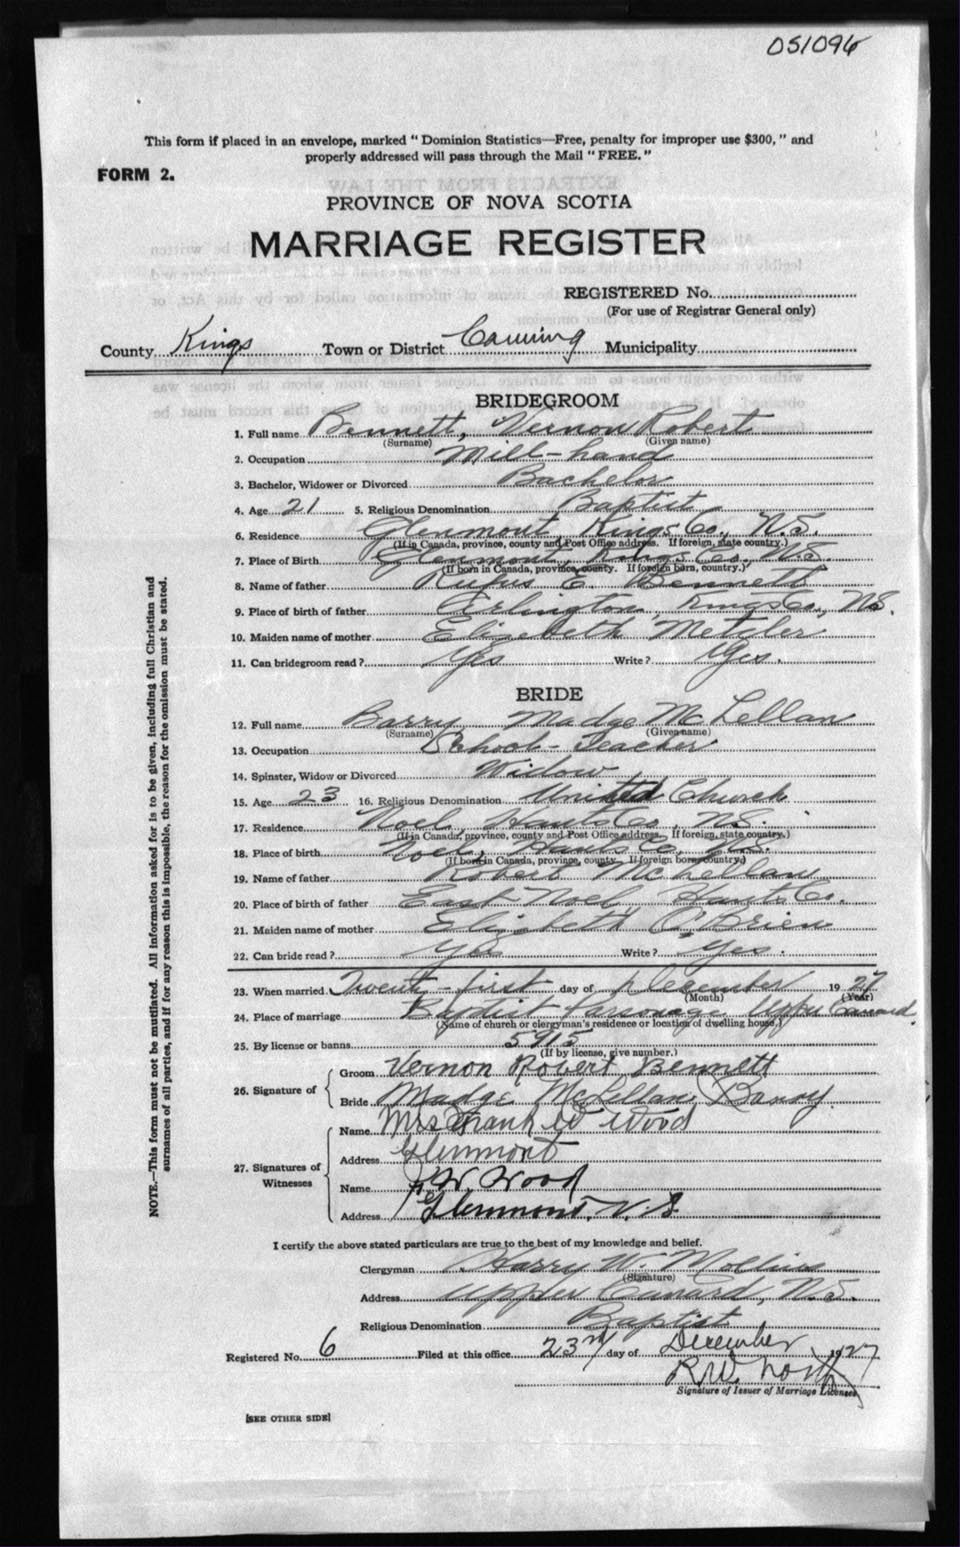 051096
This form if placed in an envelope, marked "Dominion Statistics—Free, penalty for improper use $300," and
properly addressed will pass through the Mail "FREE."
FORM 2.
PROVINCE OF NOVA SCOTIA
MARRIAGE REGISTER
REGISTERED No.
(For use of Registrar General only)
County Kings Town or District Canning Municipality
BRIDEGROOM
1. Full name Bennett, Vernon Robert
(Surname) (Given name)
2. Occupation Mill-hand
3. Bachelor, Widower or Divorced Bachelor
4. Age 21 5. Religious Denomination Baptist
6. Residence Glenmont, Kings Co, N.S.
(If in Canada, province, county and Post Office address. If foreign, state country.)
7. Place of Birth Glenmont, Kings Co. N.S.
(If born in Canada, province, county. If foreign born, country.)
8. Name of father Rufus E. Bennett
9. Place of birth of father Arlington, Kings Co., N.S.
10. Maiden name of mother Elizabeth Metzler
11. Can bridegroom read? Yes Write? Yes.
BRIDE
12. Full name Barry Madge McLellan
(Surname) (Given name)
13. Occupation School-Teacher
14. Spinster, Widow or Divorced Widow
15. Age 23 16. Religious Denomination United Church
17. Residence Noel, Hants Co, N.S.
(If in Canada, province, county and Post Office address. If foreign, state country.)
18. Place of birth Noel, Hants Co., N.S.
(If born in Canada, province, county. If foreign born country.)
19. Name of father Robert McLellan
20. Place of birth of father East Noel, Hants Co.
21. Maiden name of mother Elizabeth O'Brien
22. Can bride read? Yes Write? Yes.
23. When married Twenty-first day of December 1927
(Month) (Year)
24. Place of marriage Baptist Parsonage Upper Canard.
(Name of church or clergyman's residence or location of dwelling house.)
25. By license or banns 5915
(If by license, give number.)
26. Signature of
Groom Vernon Robert Bennett
Bride Madge McLellan Barry.
27. Signatures of Witnesses
Name Mrs Frank W Wood
Address Glenmont
Name F W. Wood
Address Glenmont. N.S.
I certify the above stated particulars are true to the best of my knowledge and belief.
Clergyman Harry W. Mollins
(Signature)
Address Upper Canard, N.S.
Religious Denomination Baptist
Registered No. 6 Filed at this office 23rd day of December 1927
R.W. North
Signature of Issuer of Marriage Licenses
[SEE OTHER SIDE]
NOTE.—This form must not be mutilated. All information asked for is to be given, including full Christian and
surnames of all parties, and if for any reason this is impossible, the reason for the omission must be stated.